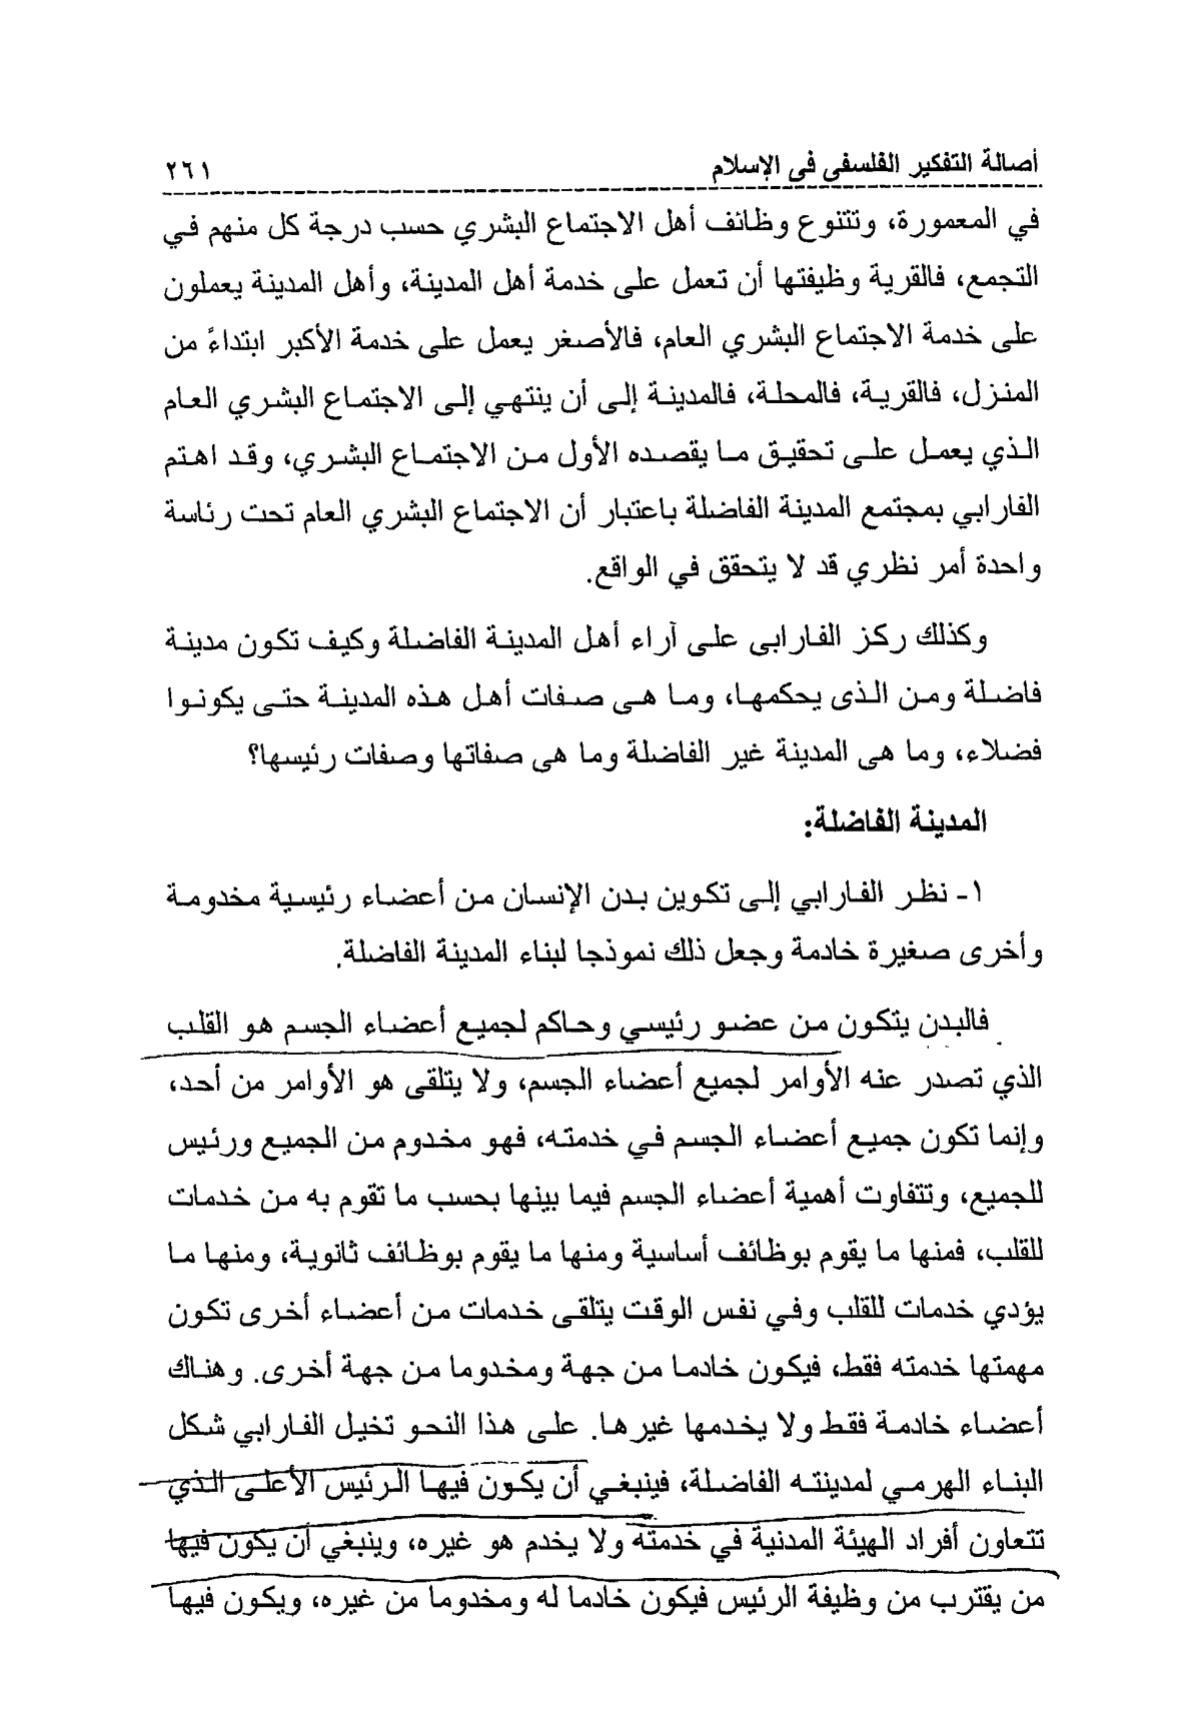 أصالة التفكير الفلسفى فى الإسلام ٢٦١
في المعمورة، وتتنوع وظائف أهل الاجتماع البشري حسب درجة كل منهم في
التجمع، فالقرية وظيفتها أن تعمل على خدمة أهل المدينة، وأهل المدينة يعملون
على خدمة الاجتماع البشري العام، فالأصغر يعمل على خدمة الأكبر ابتداءً من
المنزل، فالقرية، فالمحلة، فالمدينة إلى أن ينتهي إلى الاجتماع البشري العام
الذي يعمل على تحقيق ما يقصده الأول من الاجتماع البشري، وقد اهتم
الفارابي بمجتمع المدينة الفاضلة باعتبار أن الاجتماع البشري العام تحت رئاسة
واحدة أمر نظري قد لا يتحقق في الواقع.
وكذلك ركز الفارابى على آراء أهل المدينة الفاضلة وكيف تكون مدينة
فاضلة ومن الذى يحكمها، وما هى صفات أهل هذه المدينة حتى يكونوا
فضلاء، وما هى المدينة غير الفاضلة وما هى صفاتها وصفات رئيسها؟
المدينة الفاضلة:
١- نظر الفارابي إلى تكوين بدن الإنسان من أعضاء رئيسية مخدومة
وأخرى صغيرة خادمة وجعل ذلك نموذجا لبناء المدينة الفاضلة.
فالبدن يتكون من عضو رئيسي وحاكم لجميع أعضاء الجسم هو القلب
الذي تصدر عنه الأوامر لجميع أعضاء الجسم، ولا يتلقى هو الأوامر من أحد،
وإنما تكون جميع أعضاء الجسم في خدمته، فهو مخدوم من الجميع ورئيس
للجميع، وتتفاوت أهمية أعضاء الجسم فيما بينها بحسب ما تقوم به من خدمات
للقلب، فمنها ما يقوم بوظائف أساسية ومنها ما يقوم بوظائف ثانوية، ومنها ما
يؤدي خدمات للقلب وفي نفس الوقت يتلقى خدمات من أعضاء أخرى تكون
مهمتها خدمته فقط، فيكون خادما من جهة ومخدوما من جهة أخرى. وهناك
أعضاء خادمة فقط ولا يخدمها غيرها. على هذا النحو تخيل الفارابي شكل
البناء الهرمي لمدينته الفاضلة، فينبغي أن يكون فيها الرئيس الأعلى الذي
تتعاون أفراد الهيئة المدنية في خدمته ولا يخدم هو غيره، وينبغي أن يكون فيها
من يقترب من وظيفة الرئيس فيكون خادما له ومخدوما من غيره، ويكون فيها